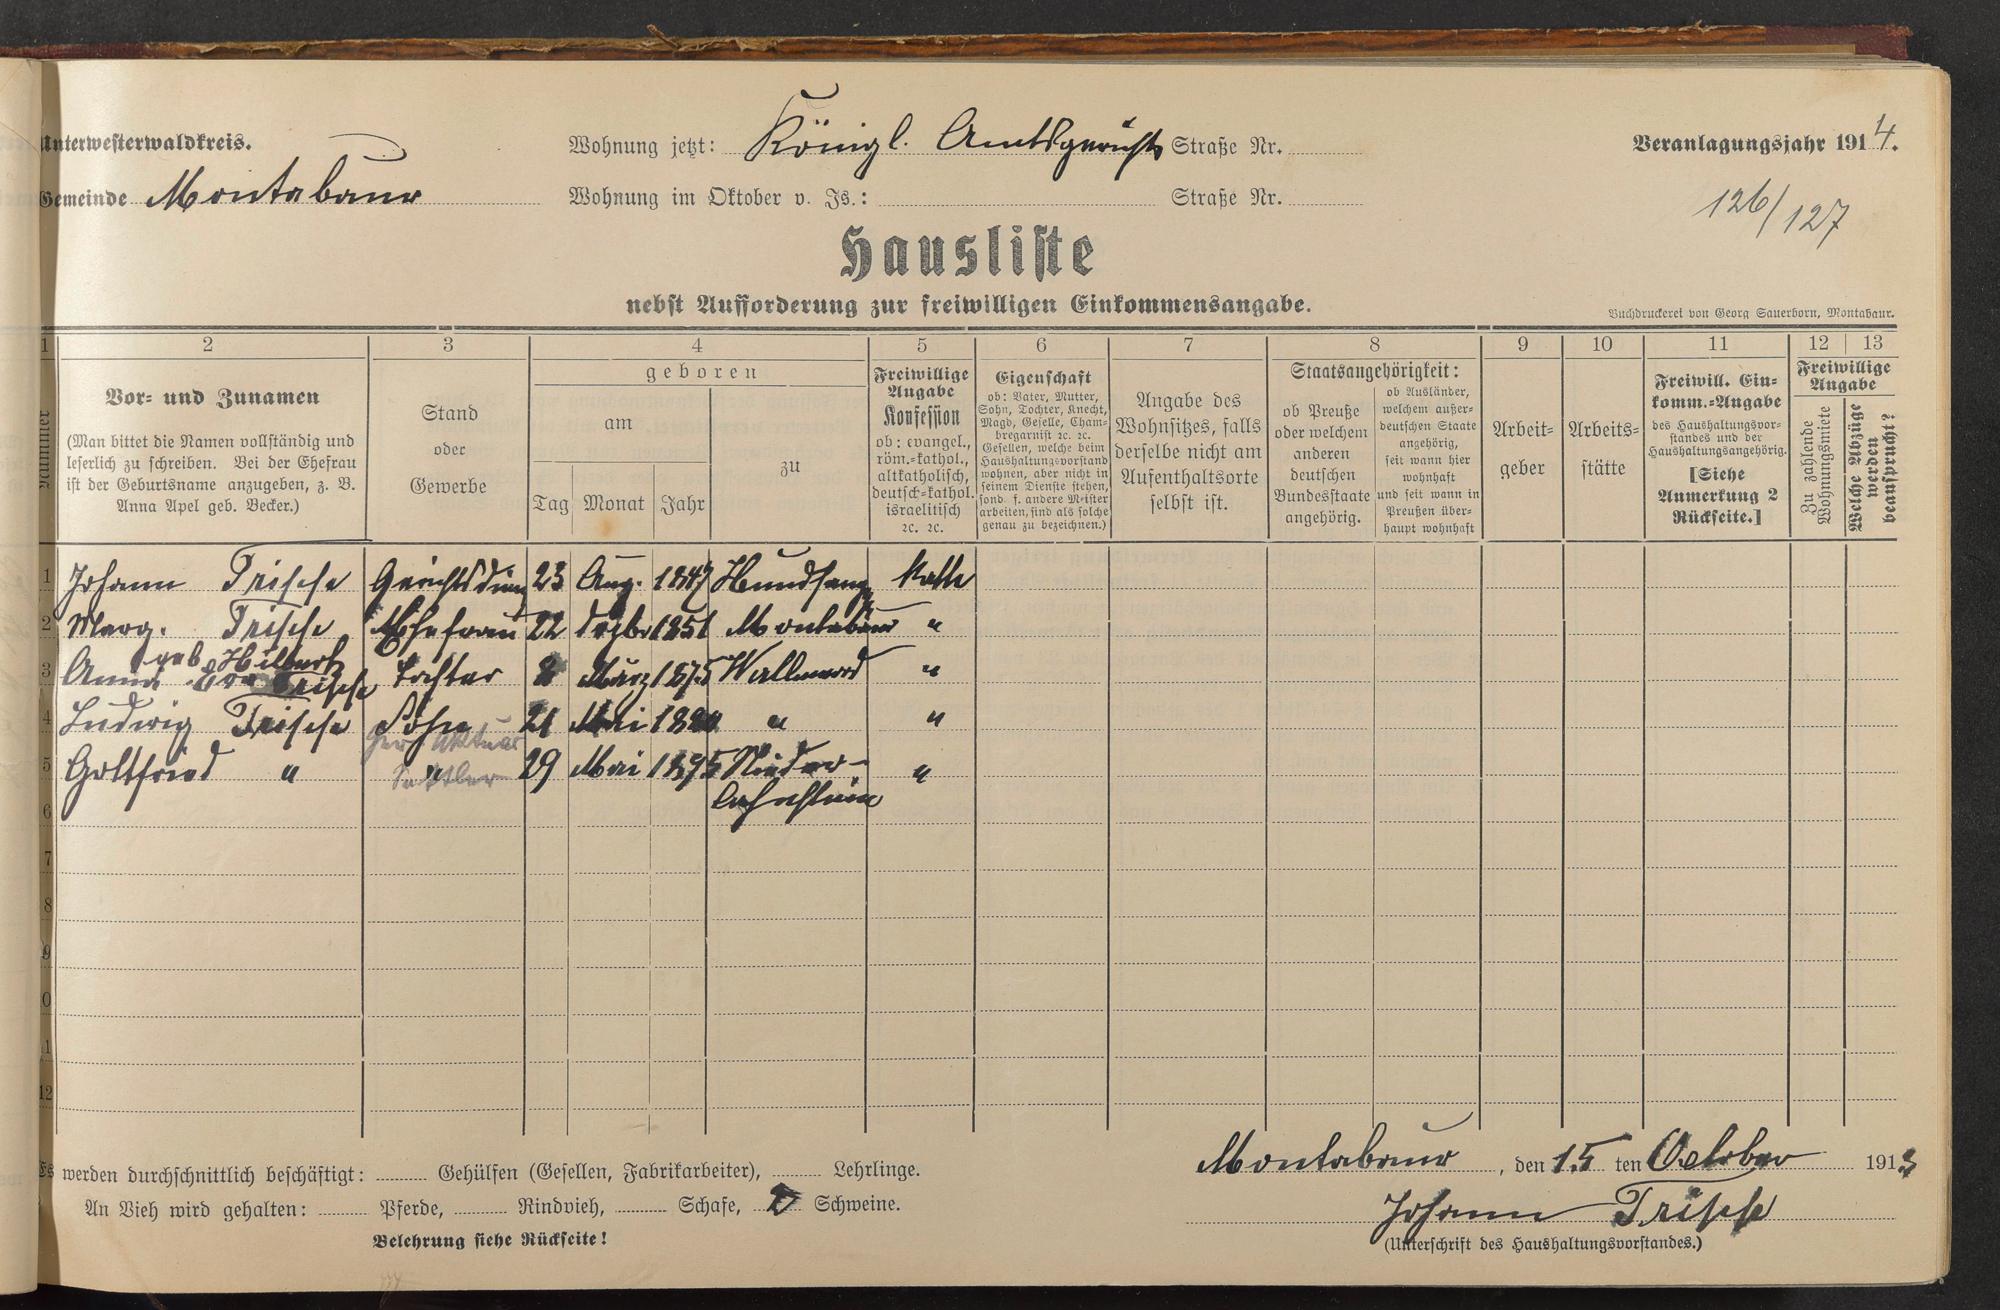 Unterwesterwaldkreis.
Wohnung jetzt: Königl. Amtsgerichts Straße Nr.
Veranlagungsjahr 1914.
Gemeinde Montabaur
Wohnung im Oktober v. Js.: Straße Nr.
126/127
Hausliste
nebst Aufforderung zur freiwilligen Einkommensangabe.
Buchdruckerei von Georg Sauerborn, Montabaur.
1 2 3 4 5 6 7 8 9 10 11 12 13
Nummer
Vor- und Zunamen
(Man bittet die Namen vollständig und
leserlich zu schreiben. Bei der Ehefrau
ist der Geburtsname anzugeben, z. B.
Anna Apel geb. Becker.)
Stand
oder
Gewerbe
geboren
am
Tag Monat Jahr
zu
Freiwillige
Angabe
Konfession
ob: evangel.,
röm.-kathol.,
altkatholisch,
deutsch-kathol.
israelitisch
ꝛc. ꝛc.
Eigenschaft
ob: Vater, Mutter,
Sohn, Tochter, Knecht,
Magd, Geselle, Cham-
bregarnist ꝛc. ꝛc.
Gesellen, welche beim
Haushaltungsvorstand
wohnen, aber nicht in
seinem Dienste stehen,
sond. f. andere Meister
arbeiten, sind als solche
genau zu bezeichnen.)
Angabe des
Wohnsitzes, falls
derselbe nicht am
Aufenthaltsorte
selbst ist.
Staatsangehörigkeit:
ob Preuße
oder welchem
anderen
deutschen
Bundesstaate
angehörig.
ob Ausländer,
welchem außer-
deutschen Staate
angehörig,
seit wann hier
wohnhaft
und seit wann in
Preußen über-
haupt wohnhaft
Arbeit-
geber
Arbeits-
stätte
Freiwill. Ein-
komm.-Angabe
des Haushaltungsvor-
standes und der
Haushaltungsangehörig.
[Siehe
Anmerkung 2
Rückseite.]
Freiwillige
Angabe
Zu zahlende
Wohnungsmiete
Welche Abzüge
werden
beansprucht?
1 Johann Frische Gerichtsdiener 23 Aug. 1847 Hundsang Kath
2 Marg. Frische Ehefrau 22 Dezbr 1851 Montabaur "
geb. Hilbert
3 Anna Eva Frische Tochter 8 März 1875 Wallmerod "
4 Ludwig Frische Sohn 21 Mai "  "
Ger. Aktuar
5 Gottfried " " Sattler 29 Mai 1895 Nieder- "
6 lahnstein
7
8
9
10
11
12
Es werden durchschnittlich beschäftigt: Gehülfen (Gesellen, Fabrikarbeiter), Lehrlinge.
An Vieh wird gehalten: Pferde, Rindvieh, Schafe, 2 Schweine.
Belehrung siehe Rückseite!
Montabaur, den 15 ten October 1913
Johann Frische
(Unterschrift des Haushaltungsvorstandes.)